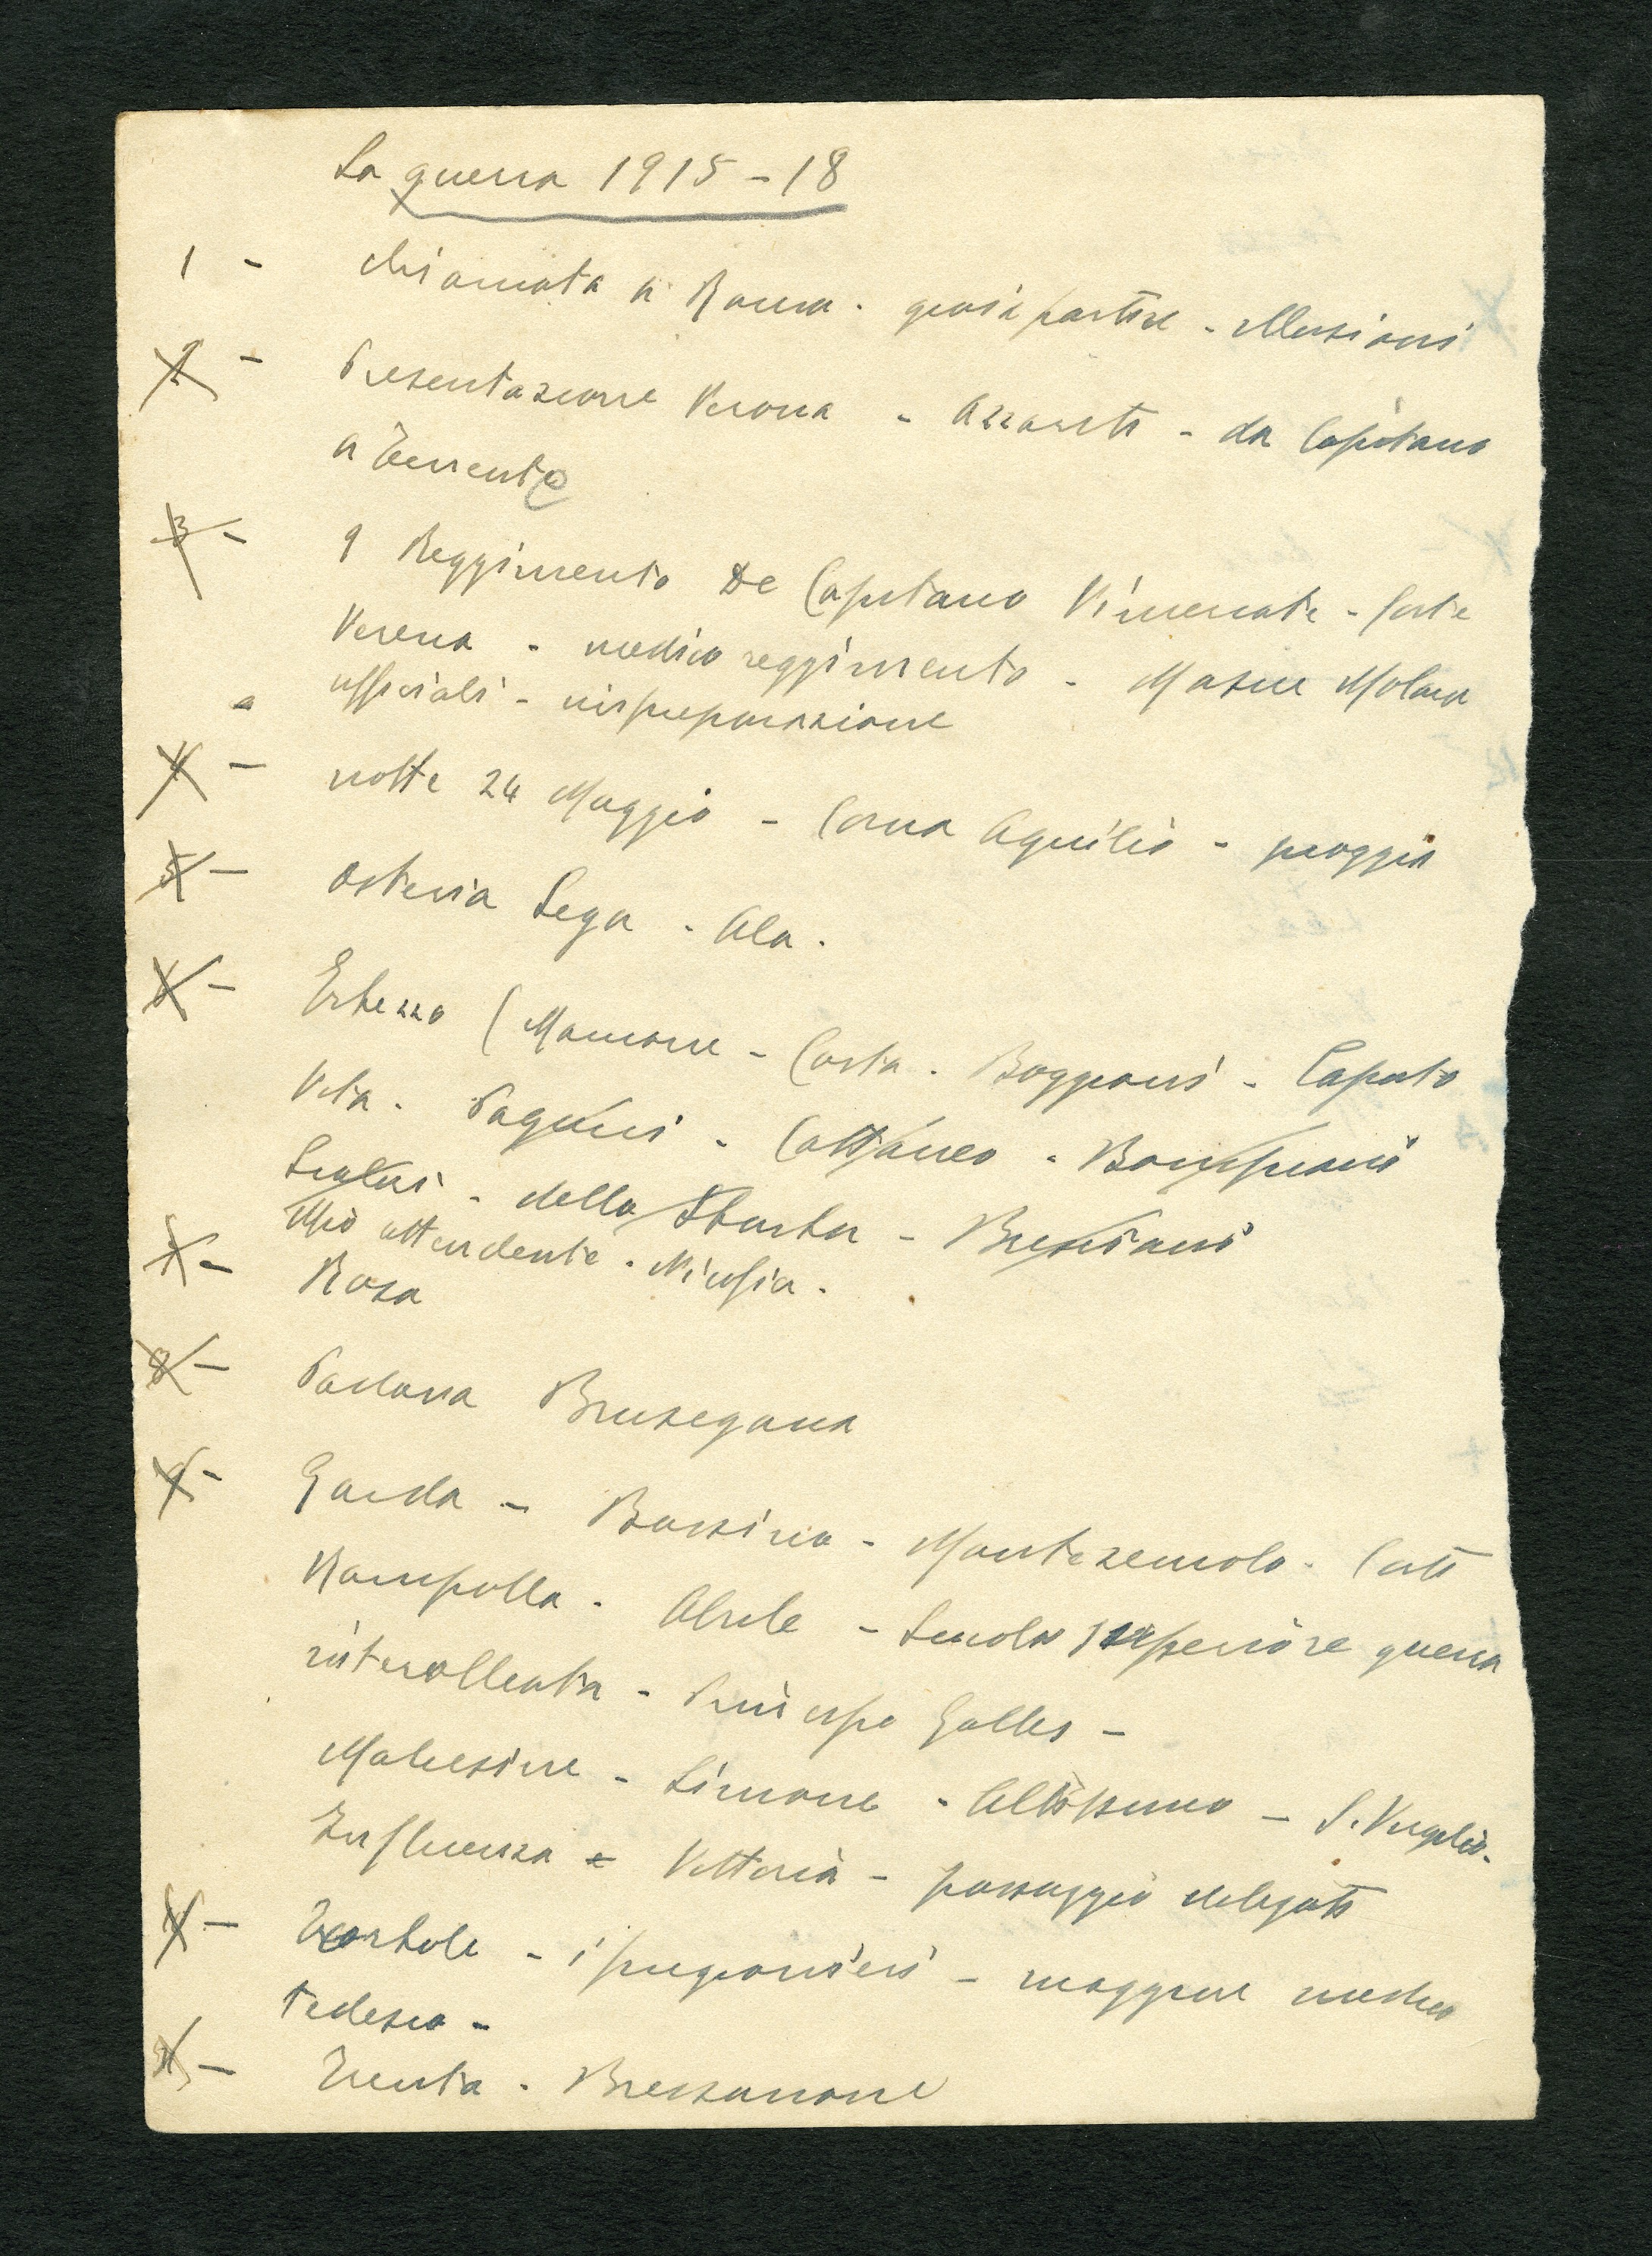 La guerra 1915-18
1 - Chiamata a Roma - gioia partire - illusioni
2 - Presentazione Verona - - da Capitano
a Tenente
3 - 9 Reggimento De Capitano Vimercate - forte
Verena - medico reggimento - Masere Molara
ufficiali - impreparazione
4 - notte 24 Maggio - Corna Aquilio - pioggia
5 - Osteria Sega - Ala.
6 - Erbezzo ( Marrone - Costa - Boggiani - Caputo
Vita - Pagani - Cattaneo - Bompiani
- della Sbarba - Bresciani
Mio attendente - Nicosia.
7 - Rosa
8 - Padova Brusegana
9 - Garda - Bassino - Montezemolo - Conti
Rampolla - - Scuola superiore guerra
interalleata - Principe Galles -
Malcesine - Limone - Altissimo - S. Vigilio -
Influenza - Vittoria - passaggio delegati
- Torbole - i prigionieri - maggiore medico
tedesco -
11 - Trento - Bressanone